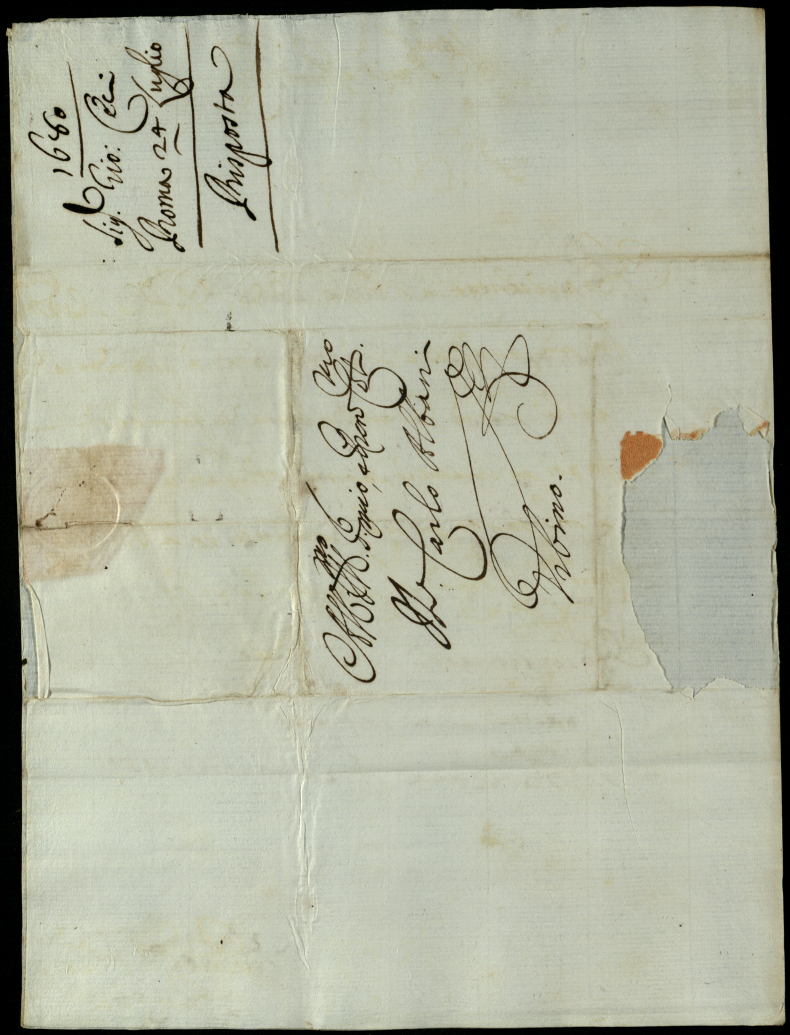 1680
Sig. Gio: Ceci
Roma 24 Luglio
Risposta
All Ill.mo Sig.r mio, e Pron Col.mo
Il Sig.r Carlo Albani
Urbino.